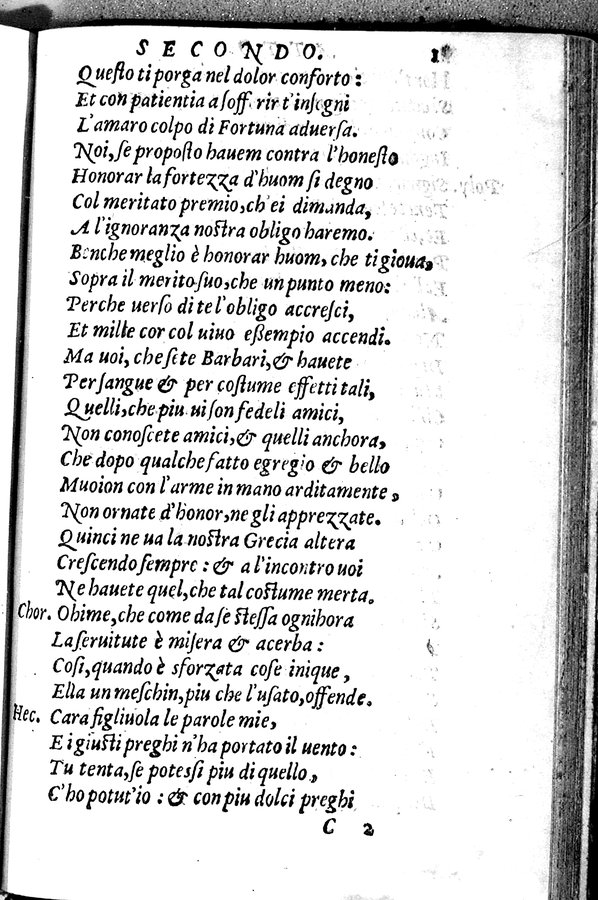 SECONDO.
Questo ti porga nel dolor conforto :
Et con patientia a soffrir t'insegni
L'amaro colpo di Fortuna aduersa.
Noi, se proposto hauem contra l'honesto
Honorar la fortezza d'huom si degno
Col meritato premio, ch'ei dimanda,
A l'ignoranza nostra obligo haremo.
Benche meglio è honorar huom, che ti gioua,
Sopra il merito suo, che un punto meno:
Perche uerso di te l'obligo accresci,
Et mille cor col uiuo essempio accendi.
Ma uoi, che sete Barbari, & hauete
Per sangue & per costume effetti tali,
Quelli, che piu ui son fedeli amici,
Non conoscete amici, & quelli anchora,
Che dopo qualche fatto egregio & bello
Muoion con l'arme in mano arditamente,
Non ornate d'honor, ne gli apprezzate.
Quinci ne ua la nostra Grecia altera
Crescendo sempre : & a l'incontro uoi
Ne hauete quel, che tal costume merta.
Chor. Ohime, che come da se stessa ogni hora
La seruitute è misera & acerba :
Cosi, quando è sforzata cose inique,
Ella un meschin, piu che l'usato, offende.
Hec. Cara figliuola le parole mie,
E i giusti preghi n'ha portato il uento :
Tu tenta, se potessi piu di quello,
C'ho potut'io : & con piu dolci preghi
C 2